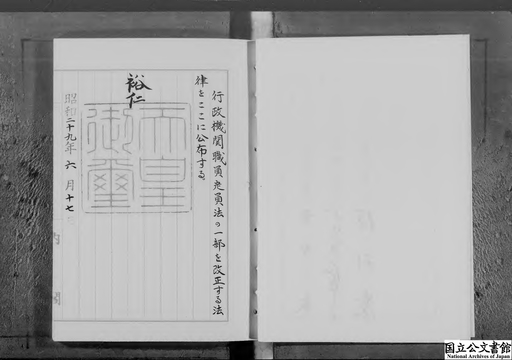 行政機関職員定員法の一部を改正する法
律をここに公布する
裕仁
天皇
御璽
昭和二十九年六月十七
内閣
国立公文書館
National Archives of Japan